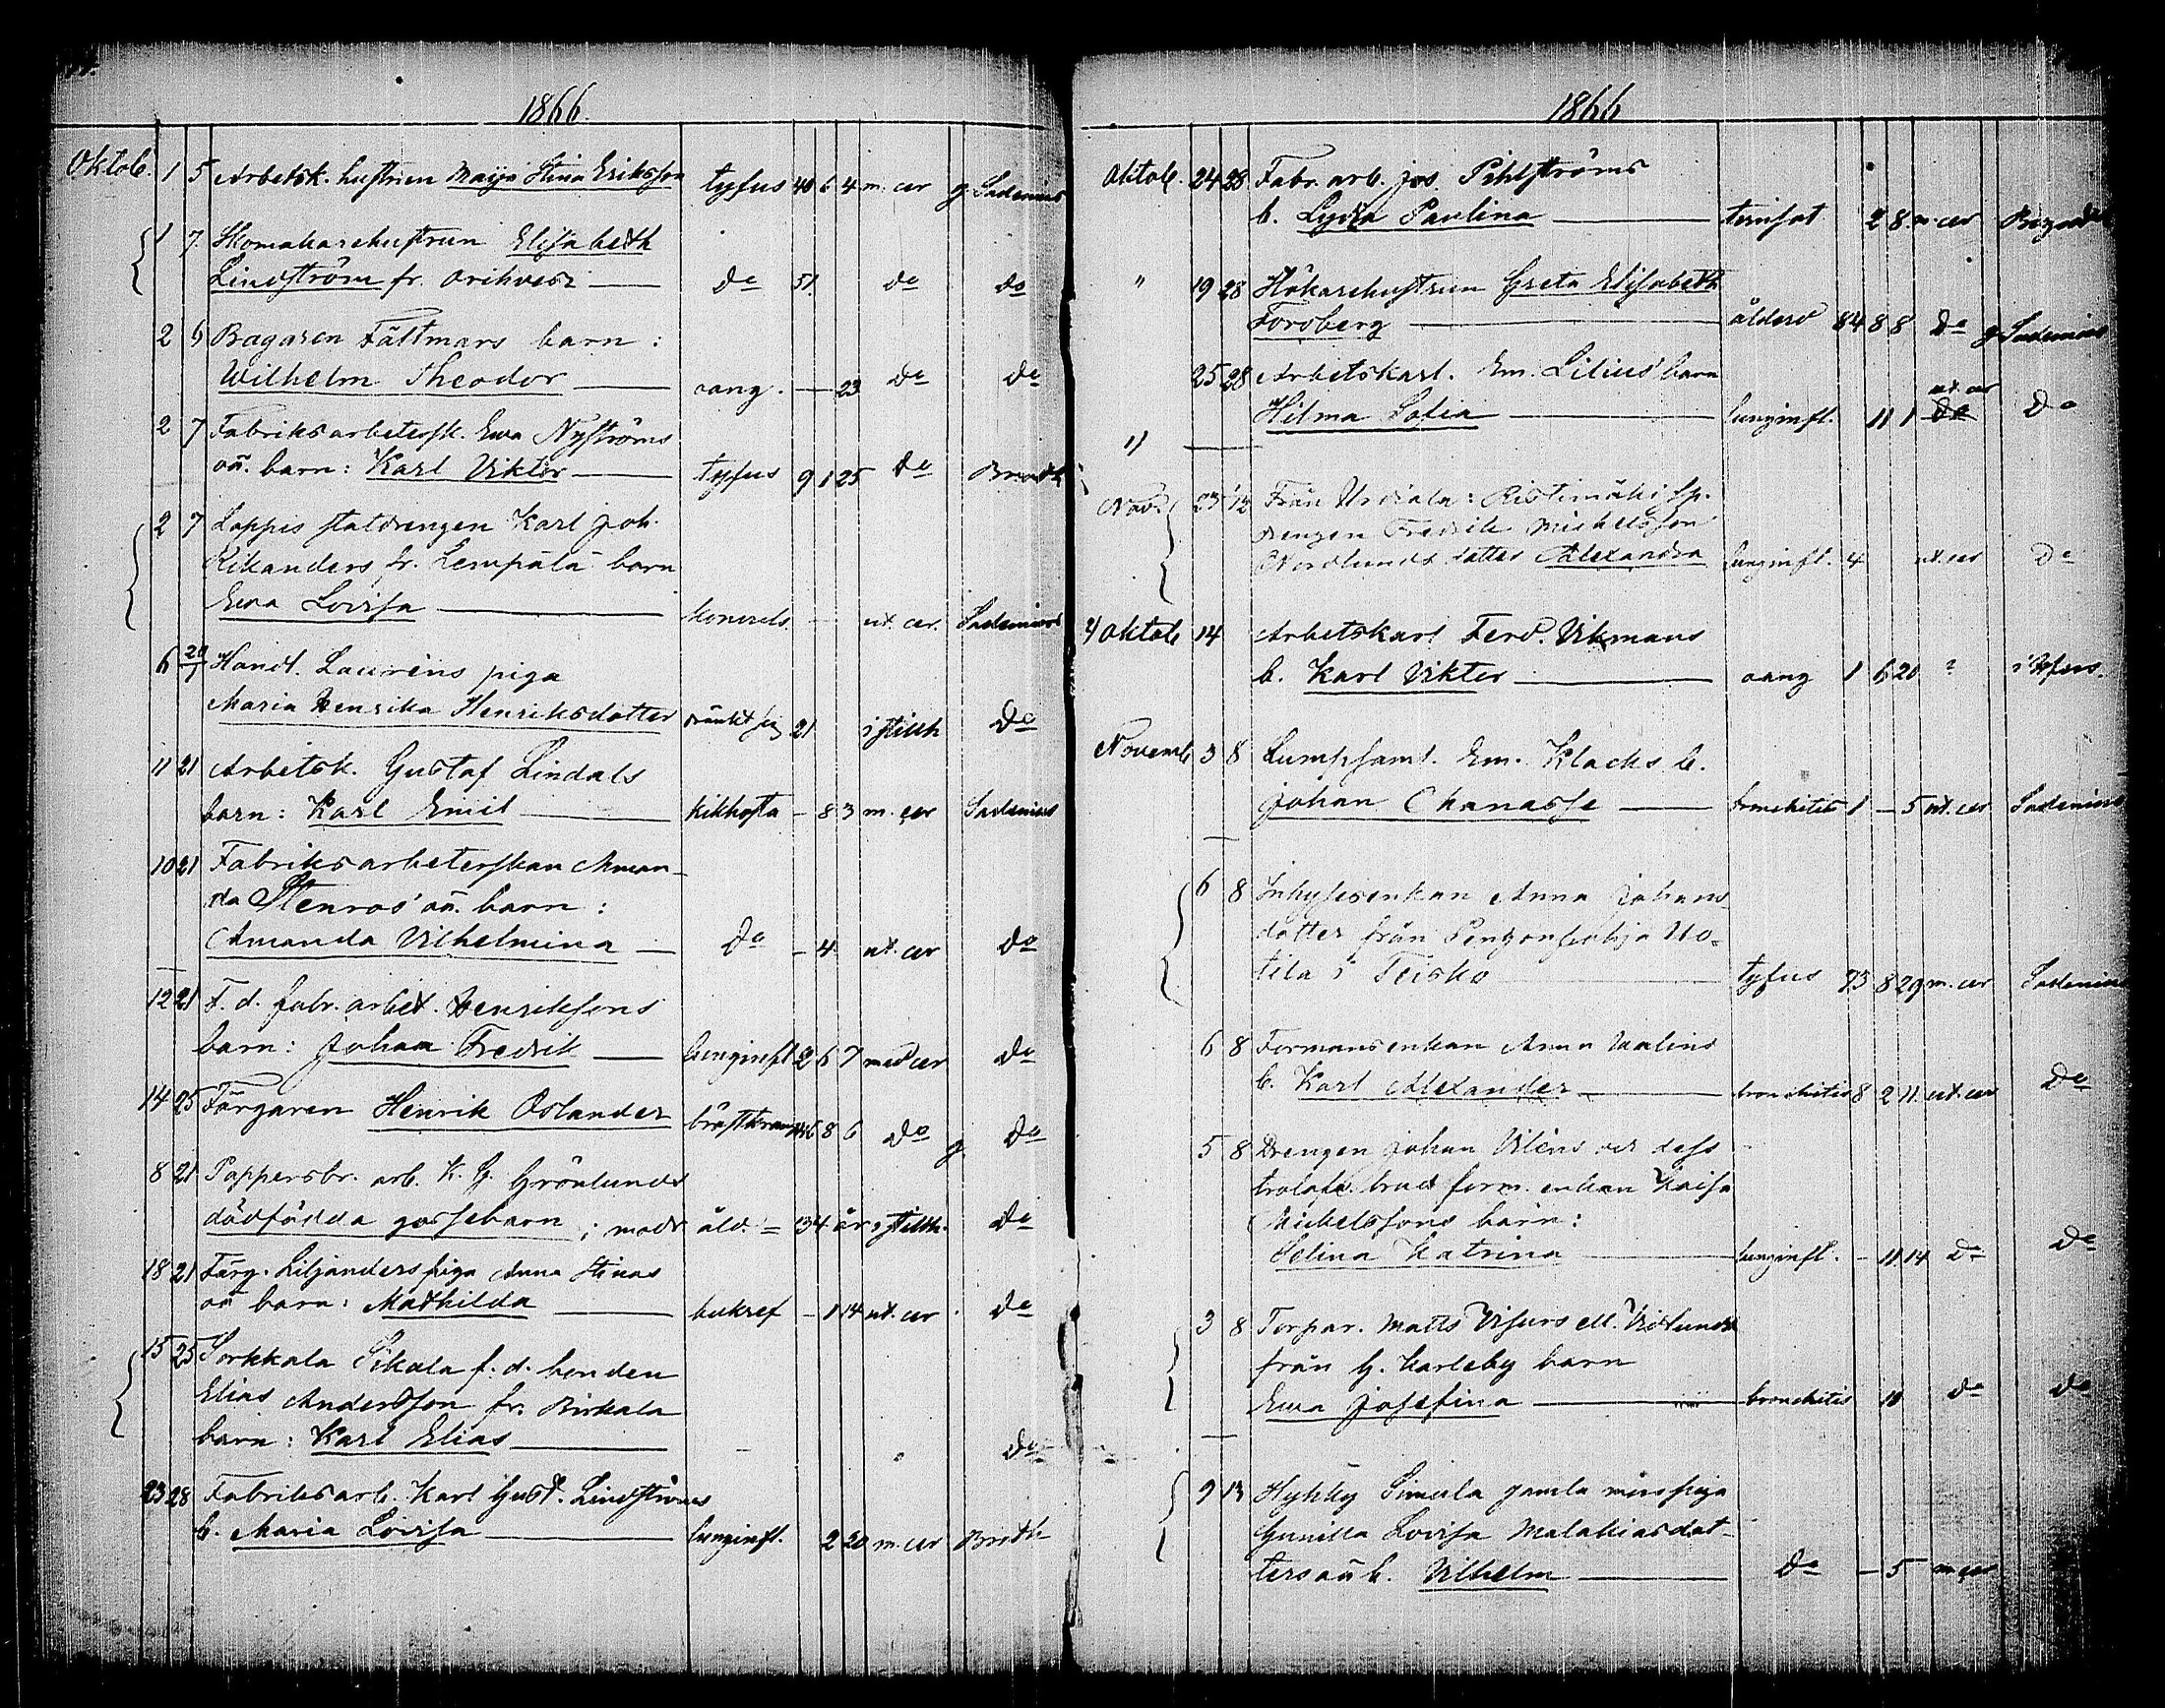 1866.
Oktob. 1 5 Arbetsk. hustrun Maija Stina Eriksson tyfus 40 6 4 m. cer g Sadenius
1 7. Skomakarehustrun Elisabeth
Lindström fr. Orihvesi do 51. do do
2 6 Bagaren Fältmars barn:
Wilhelm Theodor aang. — 23 do do
2 7 Fabriksarbetersk. Ewa Nyströms
oä. barn: Karl Viktor tyfus 9 1 25 do
2 7 Loppis statdrengen Karl Joh.
Kikanders fr. Lempälä barn
Ewa Lovisa konvuls. — ut. cer. Sadenius
6 20/7 Handl. Lauréns piga
Maria Henrika Henriksdotter dränkt sig 21 i stillh do
11 21 Arbetsk. Gustaf Lindals
barn: Karl Emil kikhosta – 8 3 m. cer Sadenius
10 21 Fabriksarbeterskan Aman-
da Stenros' oä. barn:
Amanda Vilhelmina do – 4 ut. cer do
12 21 F. d. fabr. arbet. Henriksons
barn: Johan Fredrik lunginfl 2 6 7 med cer do
14 25 Färgaren Henrik Oslander 46 8 6 do g. do
8 21 Pappersbr. arb. K. G. Grönlunds
dödfödda gossebarn; modr åld. = 34 år i stillh. do
18 21 Färg. Liljanders piga Anna Stinas
oä barn: Mathilda bukref – 1 14 ut. cer do
15 25 Sorkkala Sikala f. d. bonden
Elias Andersson fr. Birkala
barn: Karl Elias — do
23 28 Fabriksarb. Karl Gust. Lindströms
b. Maria Lovisa lunginfl. 2 20 m. cer
1866
Oktob. 24 28 Fabr. arb. Jos. Pihlströms
b. Lydia Paulina 2 8 m. cer
" 19 28 Hökarehustrun Greta Elisabeth
Forsberg ålderd 84 8 8 do g Sadenius
25 28 Arbetskarl. Em. Lilius' barn
ut. cer
Hilma Sofia lunginfl. 11 1 do do
1)
Nov. 23 12 Från Urdiala: Ristimäki sp.
drengen Fredrik Mickelsson
Nordlunds dotter Alexandra lunginfl. 4 ut. cer do
2) Oktob 14 Arbetskarl Ferd. Vikmans
b. Karl Viktor aang 1 6 20 ?
Novemb 3 8 Lumpsaml. Em. Klacks b.
Johan Chanasse bronchitis 1 – 5 ut. cer Sadenius
6 8 Inhyseenkan Anna Johans-
dotter från Uo-
tila i Teisko tyfus 73 8 29 m. cer Sadenius
6 8 Formansenkan Anna Malins
b. Karl Alexander bronchitis 8 2 11. ut. cer do
5 8 Drengen Johan Viléns och dess
trolofv. brud form. enkan Kaisa
Mickelssons barn:
Selina Katrina lunginfl. – 11 14 do do
3 8 Torpar. Matts Visurs ell. Vidlunds
från G. Karleby barn
Ewa Josefina bronchitis 10 do do
9 13 Hyhky Simula gamla
Gunilla Lovisa Malakiasdot-
ters oä b. Vilhelm do – 5 m cer